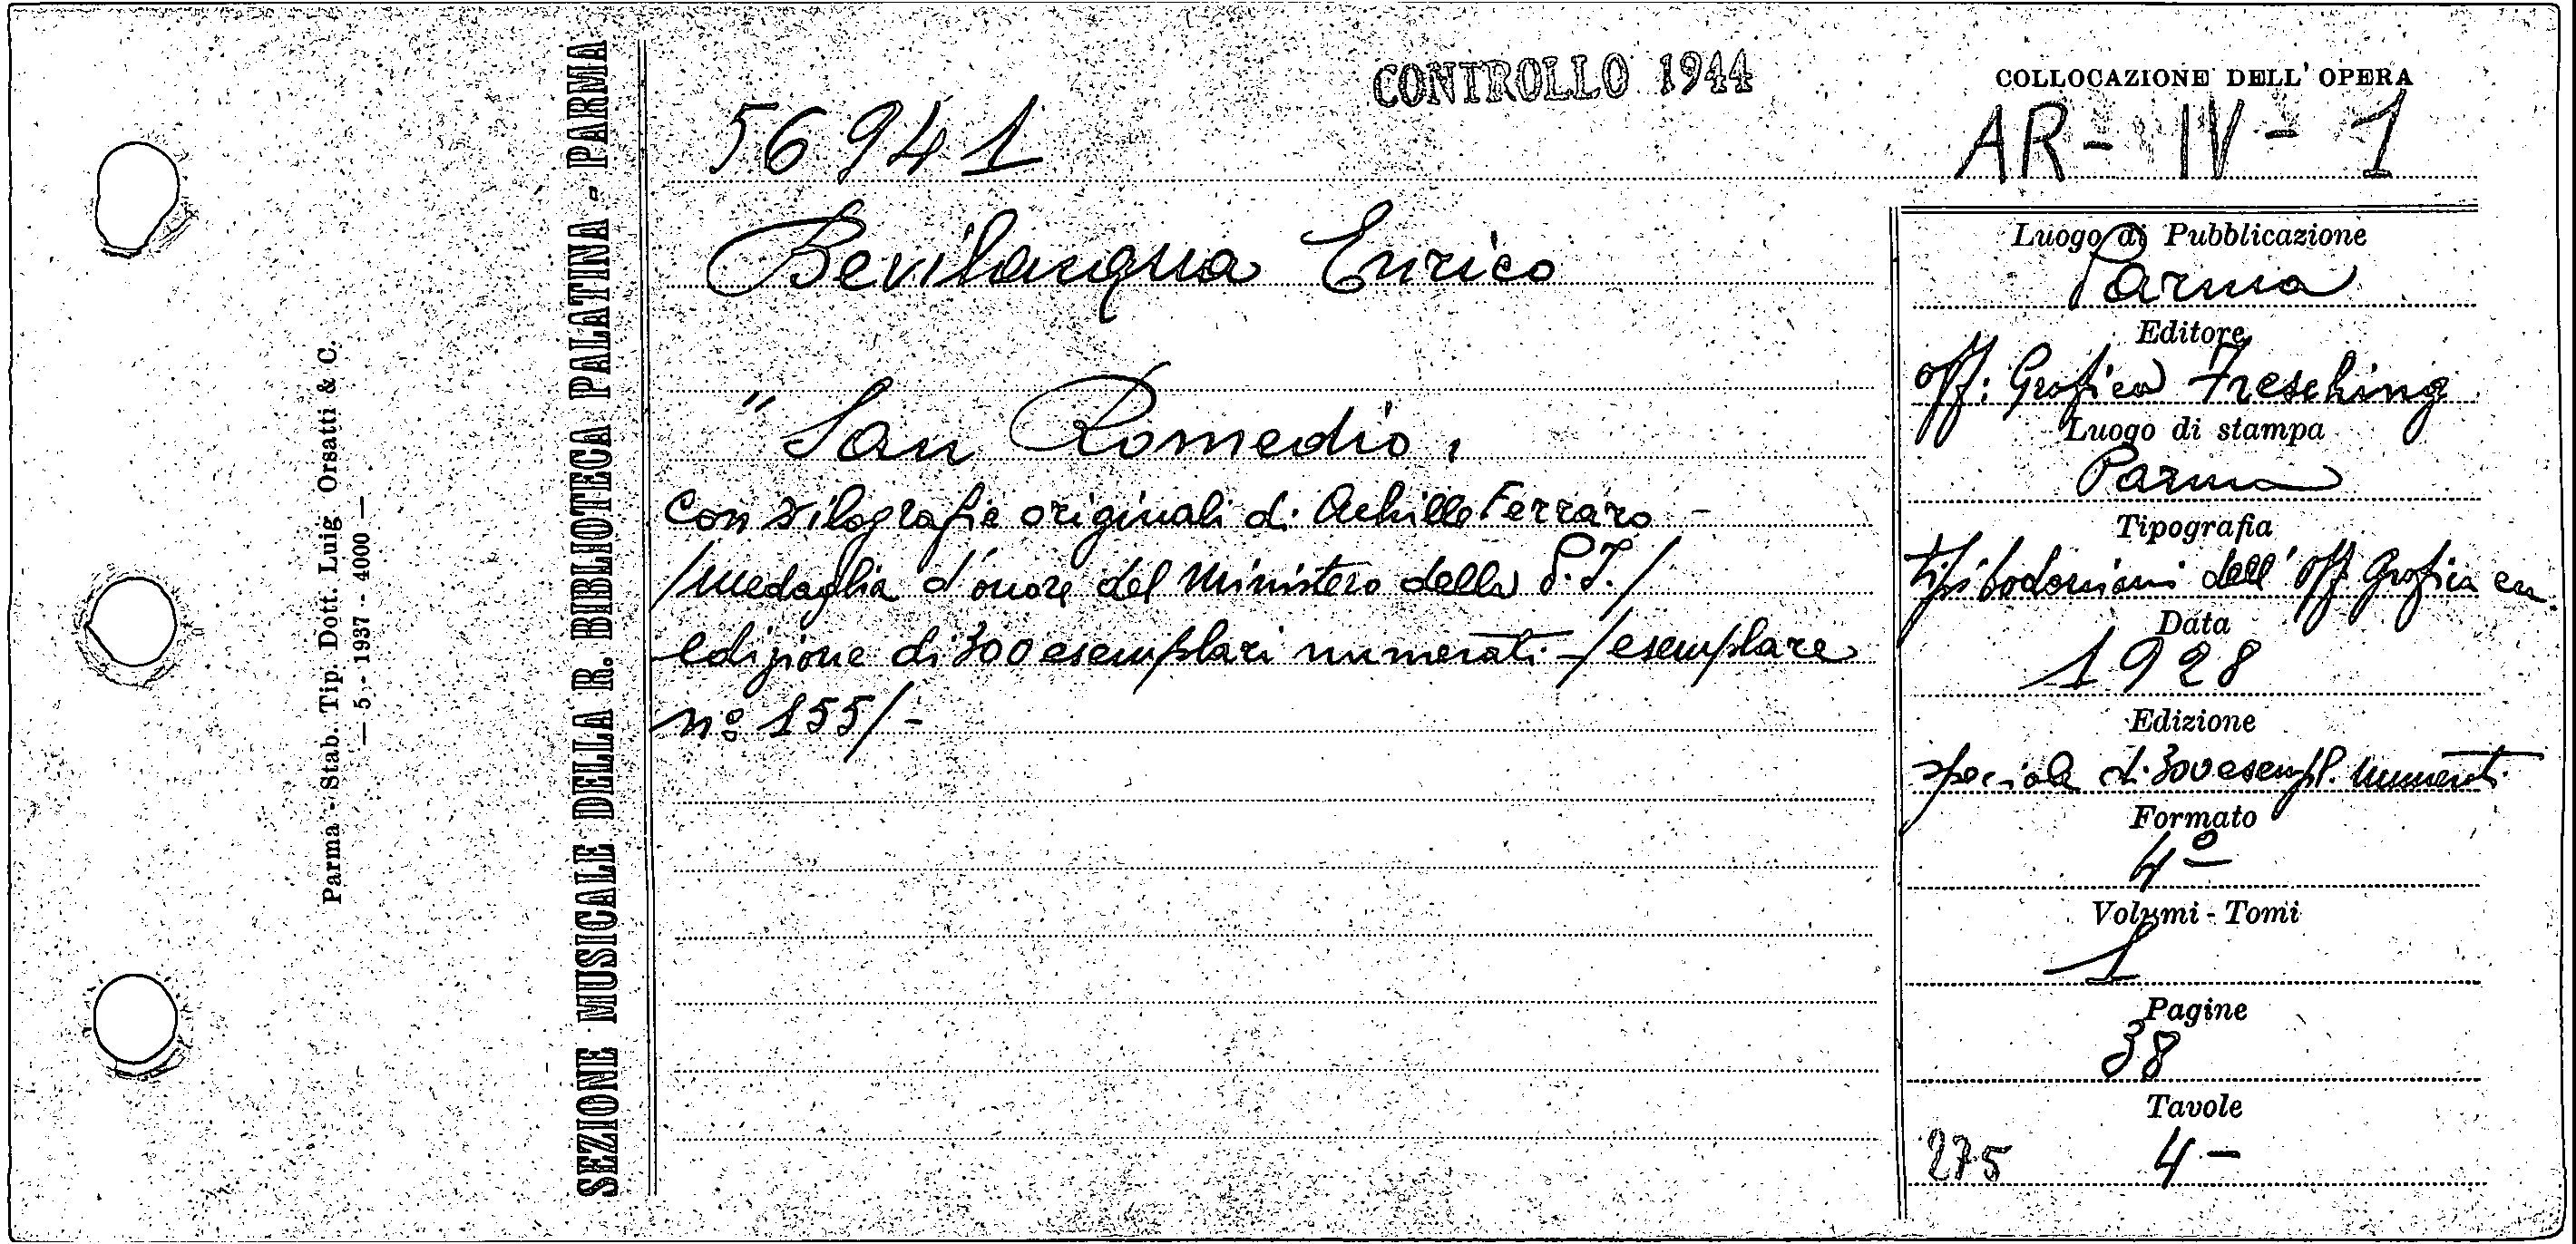 CONTROLLO 1944
COLLOCAZIONE DELL' OPERA
56941
AR - IV - 1
Bevilacqua Enrico
" San Romedio,
Con xilografie originali di Achille Ferraro -
/medaglia d'onore del Ministero della P.I./
edizione di 300 esemplari numerati - /esemplare
nº 155/-
Luogo di Pubblicazione
Parma
Editore
Off. Grafica Fresching
Luogo di stampa
Parma
Tipografia
tipi bodoniani dell' Off. Grafica
Data
1928
Edizione
speciale di 300 esempl. numerati
Formato
4º
Volumi - Tomi
1
Pagine
38
Tavole
275 4 -
SEZIONE MUSICALE DELLA R. BIBLIOTECA PALATINA - PARMA
Parma - Stab. Tip. Dott. Luig Orsatti & C.
— 5 - 1937 - 4000 —